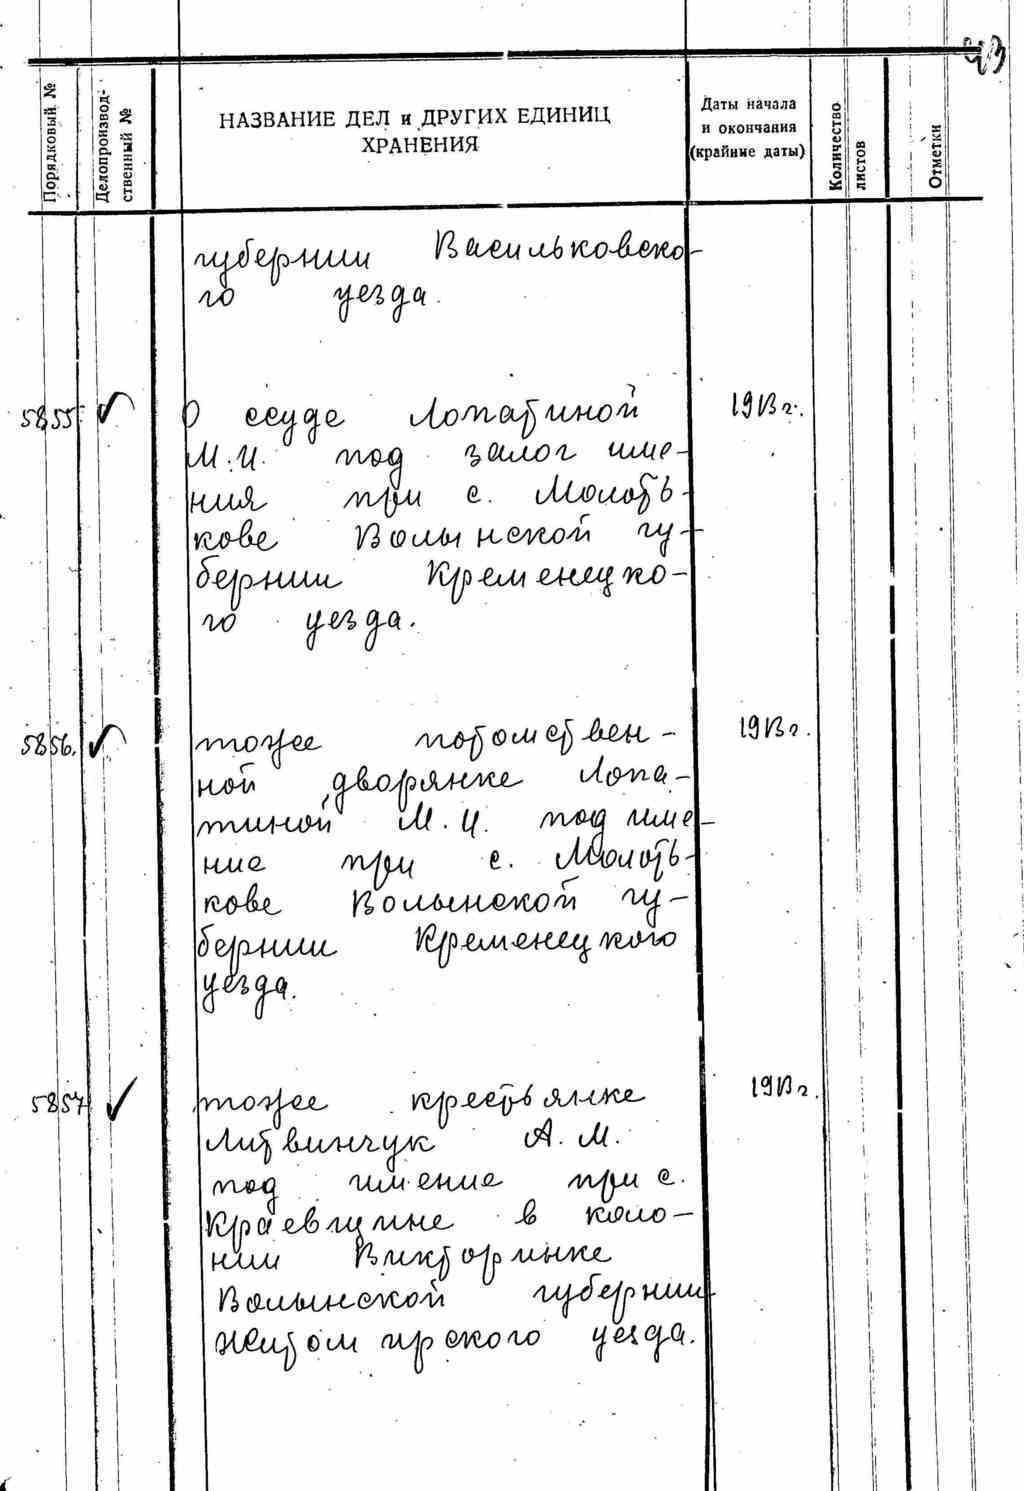 43
Порядковый №
Делопроизвод-
ственный №
НАЗВАНИЕ ДЕЛ и ДРУГИХ ЕДИНИЦ
ХРАНЕНИЯ
Даты начала
и окончания
(крайние даты)
Количество
листов
Отметки
губернии Васильковско-
го уезда.
5855 О ссуде Лопатиной 1913 г.
М.И. под залог име-
ния при с. Молоть-
кове Волынской гу-
бернии Кременецко-
го уезда.
5856. тоже потомствен- 1913 г.
ной дворянке Лопа-
тиной М.И. под име-
ние при с. Молоть-
кове Волынской гу-
бернии Кременецкого
уезда.
5857 тоже крестьянке 1913 г.
Литвинчук А.М.
под имение при с.
Краевщине в коло-
нии Викторинке
Волынской губернии
Житомирского уезда.